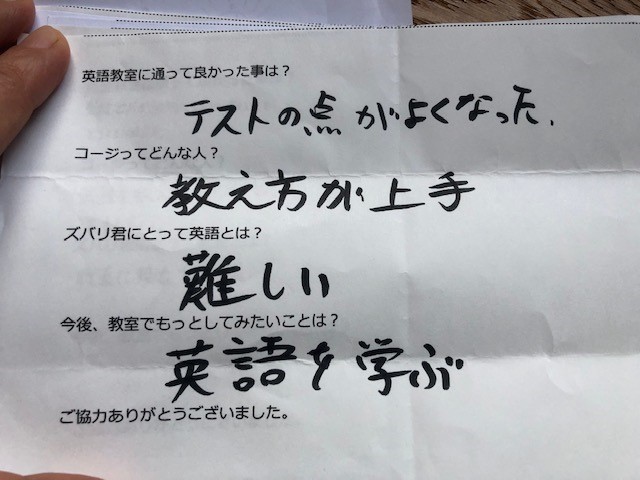 英語教室に通って良かった事は？
テストの点がよくなった.
コージってどんな人？
教え方が上手
ズバリ君にとって英語とは？
難しい
今後、教室でもっとしてみたいことは？
英語を学ぶ
ご協力ありがとうございました。